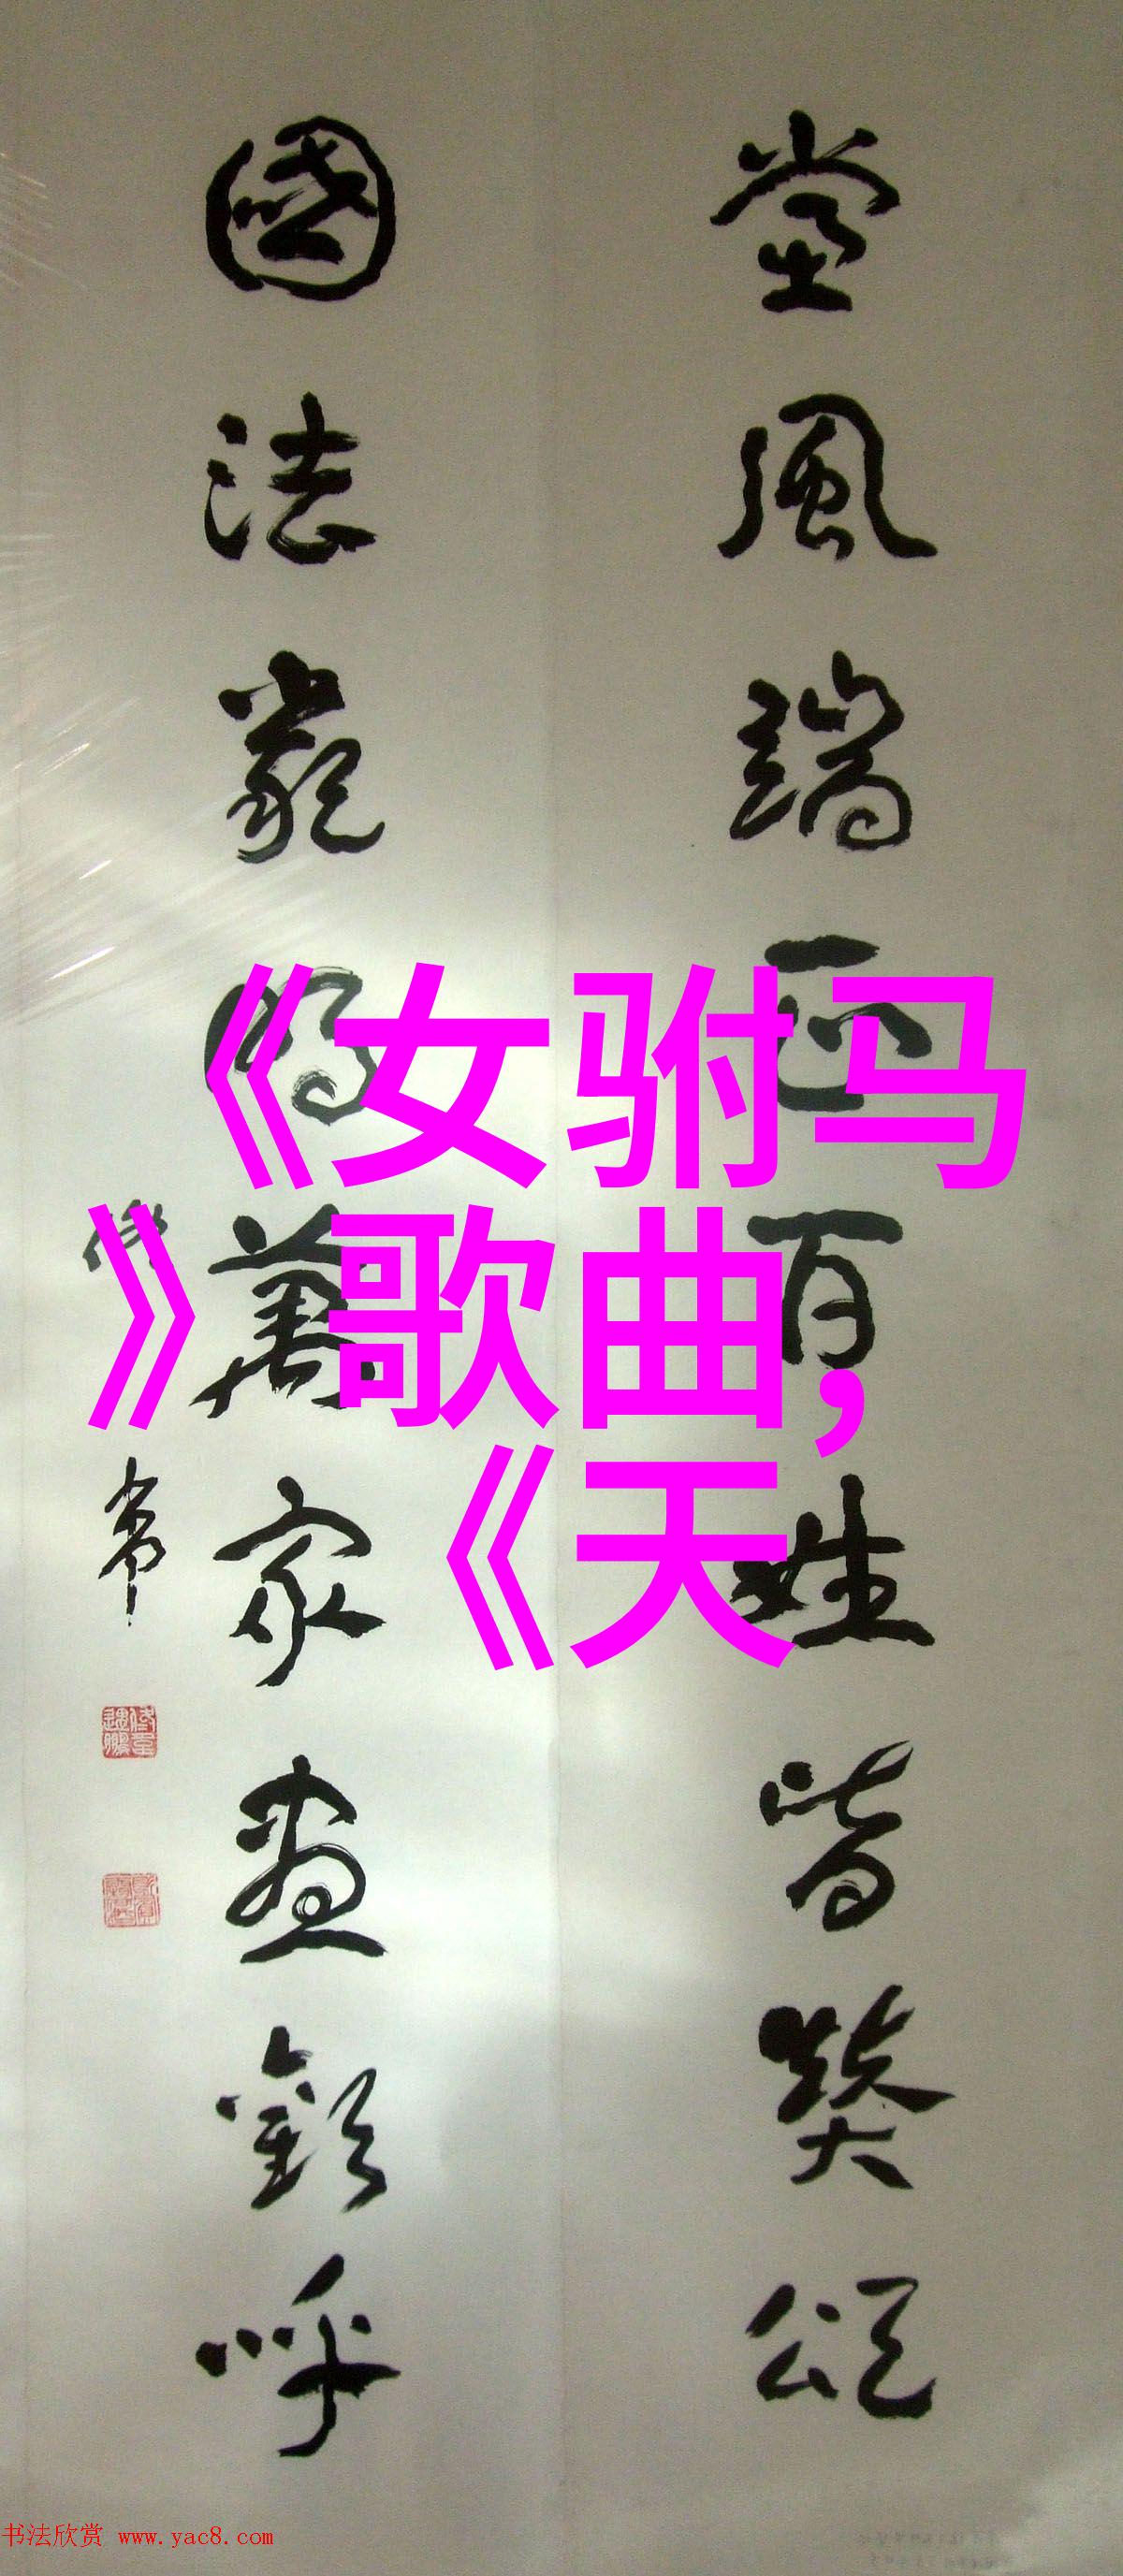 黨風端正百姓皆頌
國法嚴明萬家盡歡呼
《女驸马
》歌曲,
《天
书法欣赏 www.yac8.com